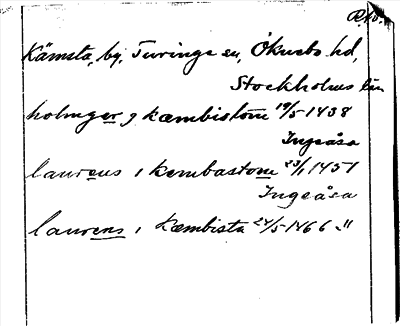 Kämsta, by, Turinge sn, Öknebo hd,
Stockholms län
holmger j kæmbistom 19/5 1438
Ingeåsa
laurens i kembastom 23/1 1451
Ingeåsa
laurens i kæmbista 24/5 1466 "